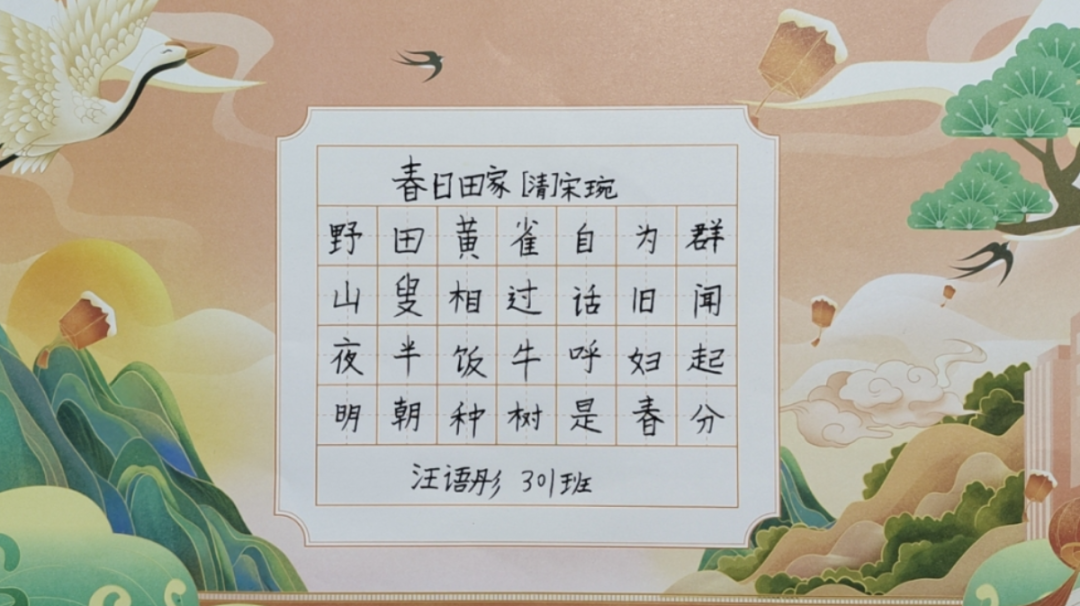 春日田家[清]宋琬
野田黄雀自为群
山叟相过话旧闻
夜半饭牛呼妇起
明朝种树是春分
汪语彤 301班